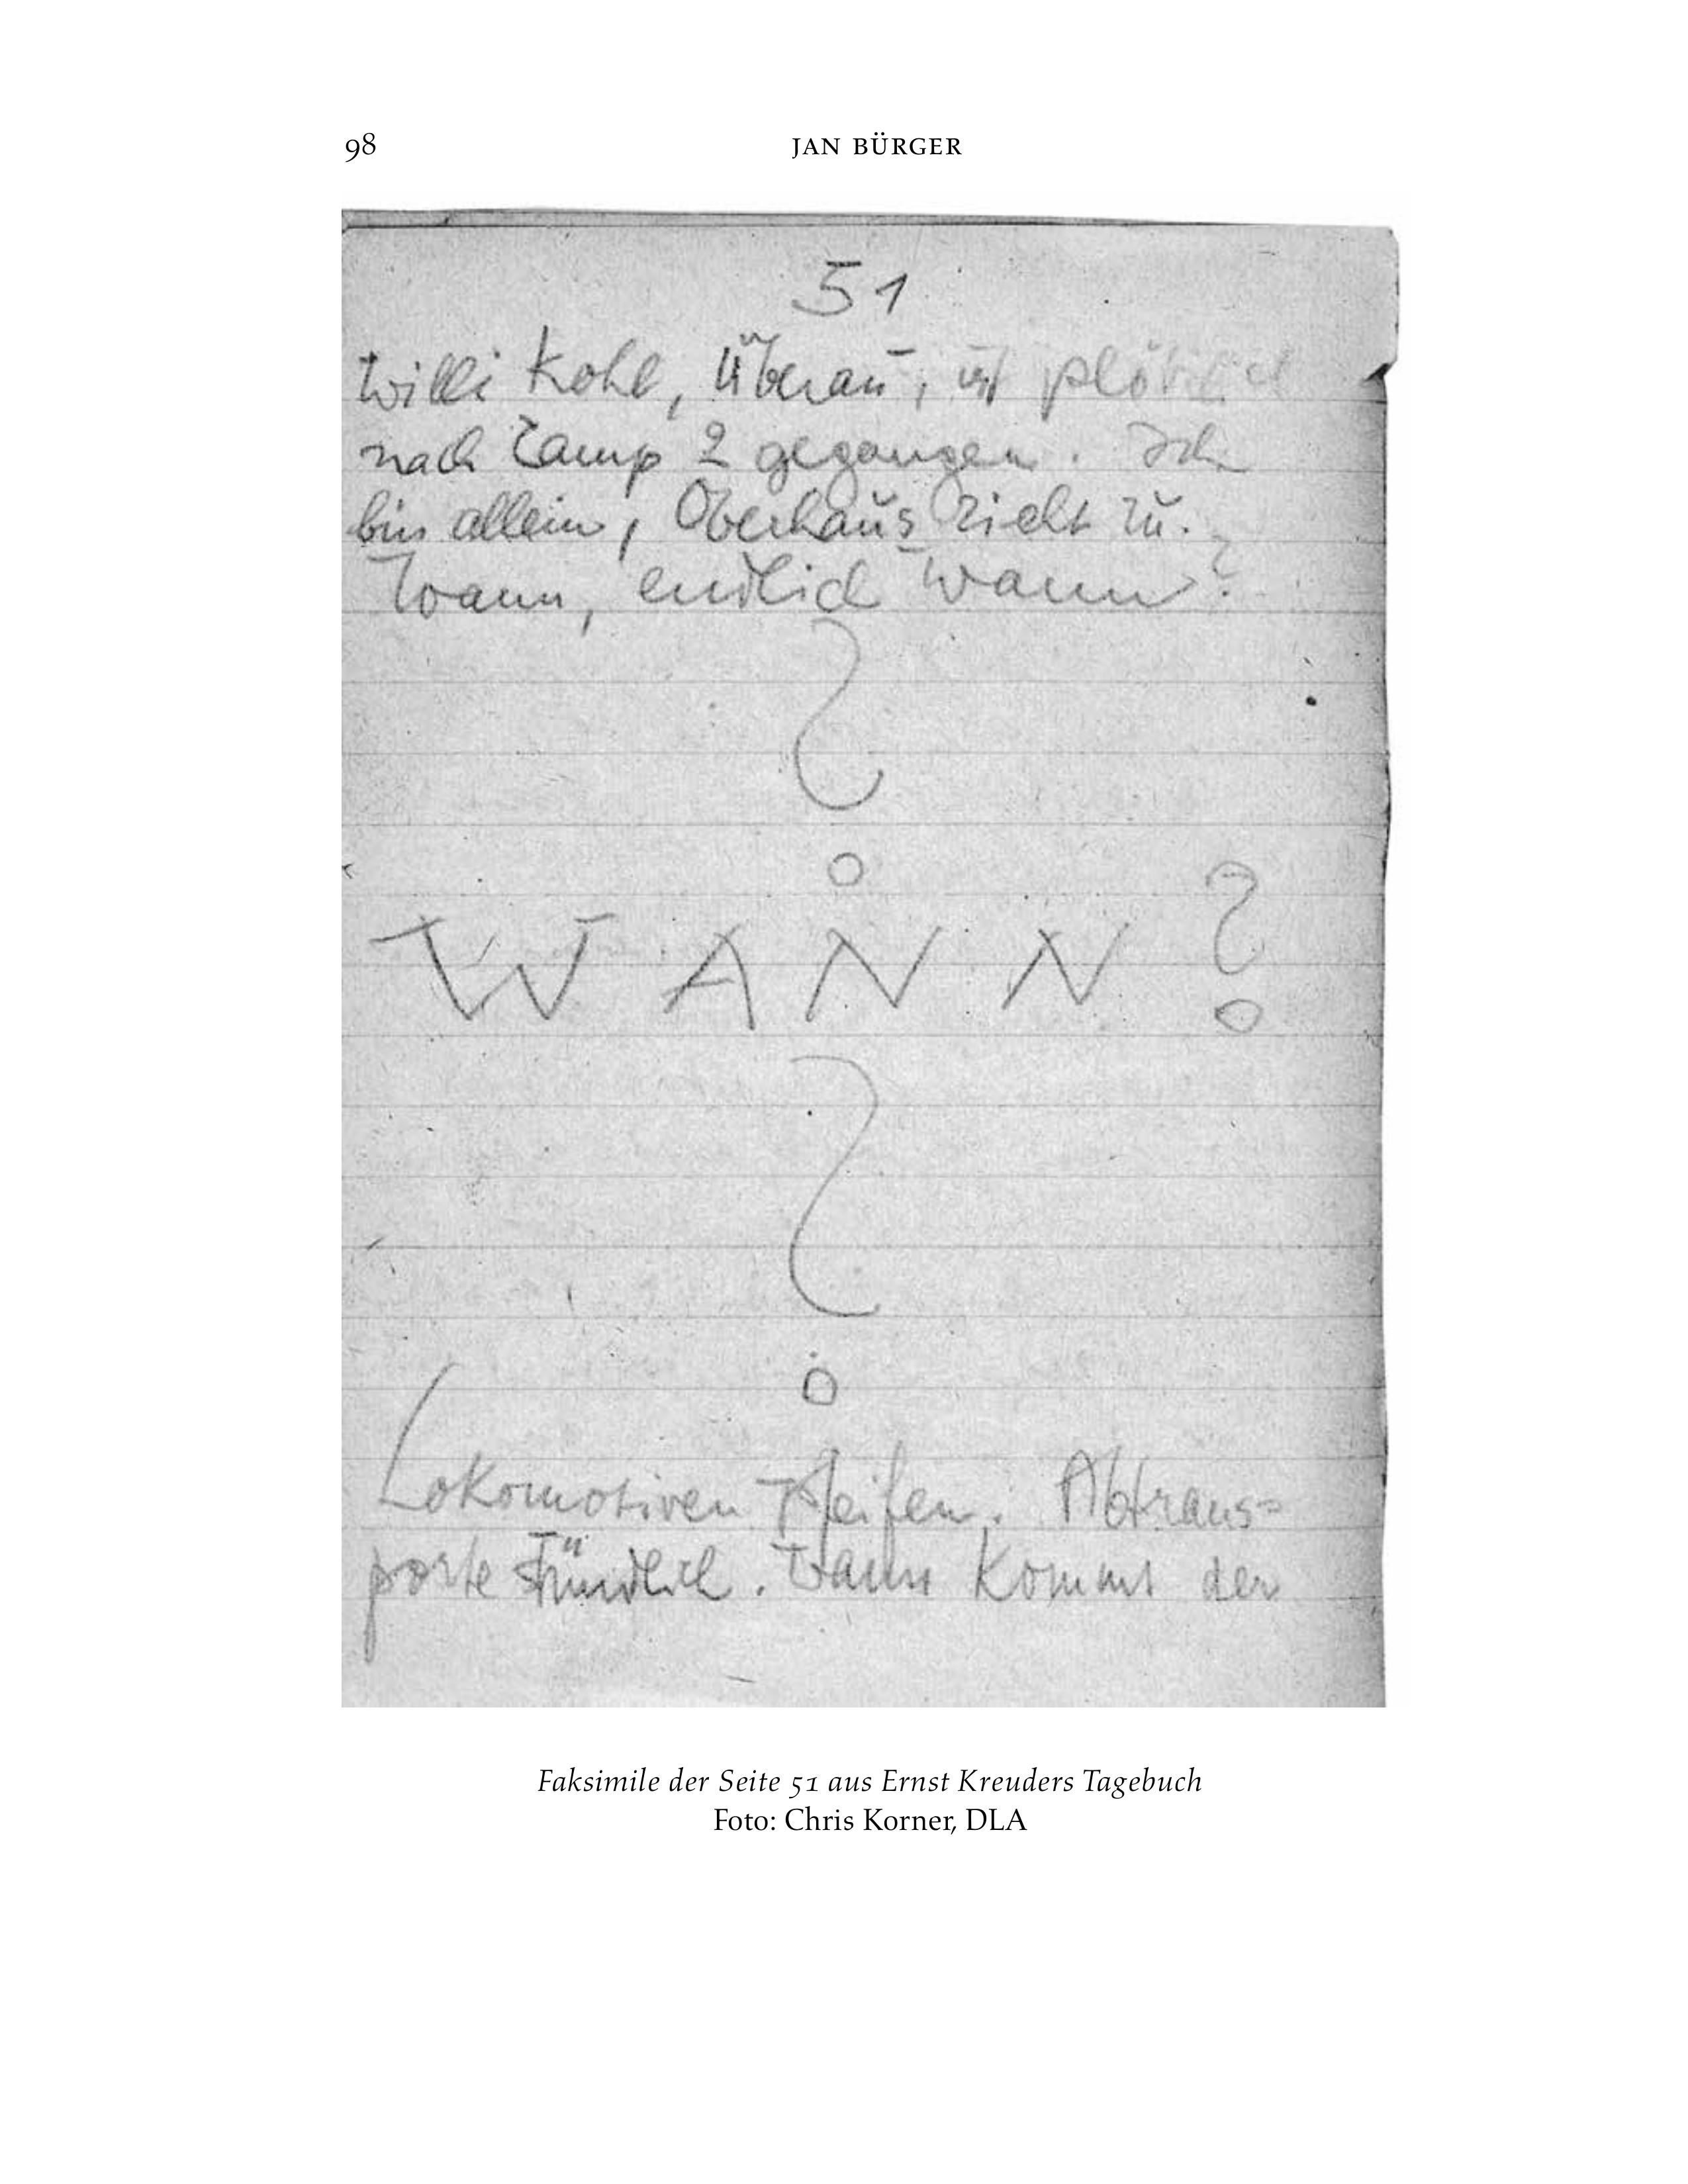 98 JAN BÜRGER
51
Willi Kohl, Überau, ist plötzlich
nach Camp 2 gegangen. Ich
bin allein, Oberhaus zieht zu.
Wann, endlich wann?
?
WANN?
?
Lokomotiven pfeifen. Abtrans=
porte stündlich. Wann kommt der
Faksimile der Seite 51 aus Ernst Kreuders Tagebuch
Foto: Chris Korner, DLA